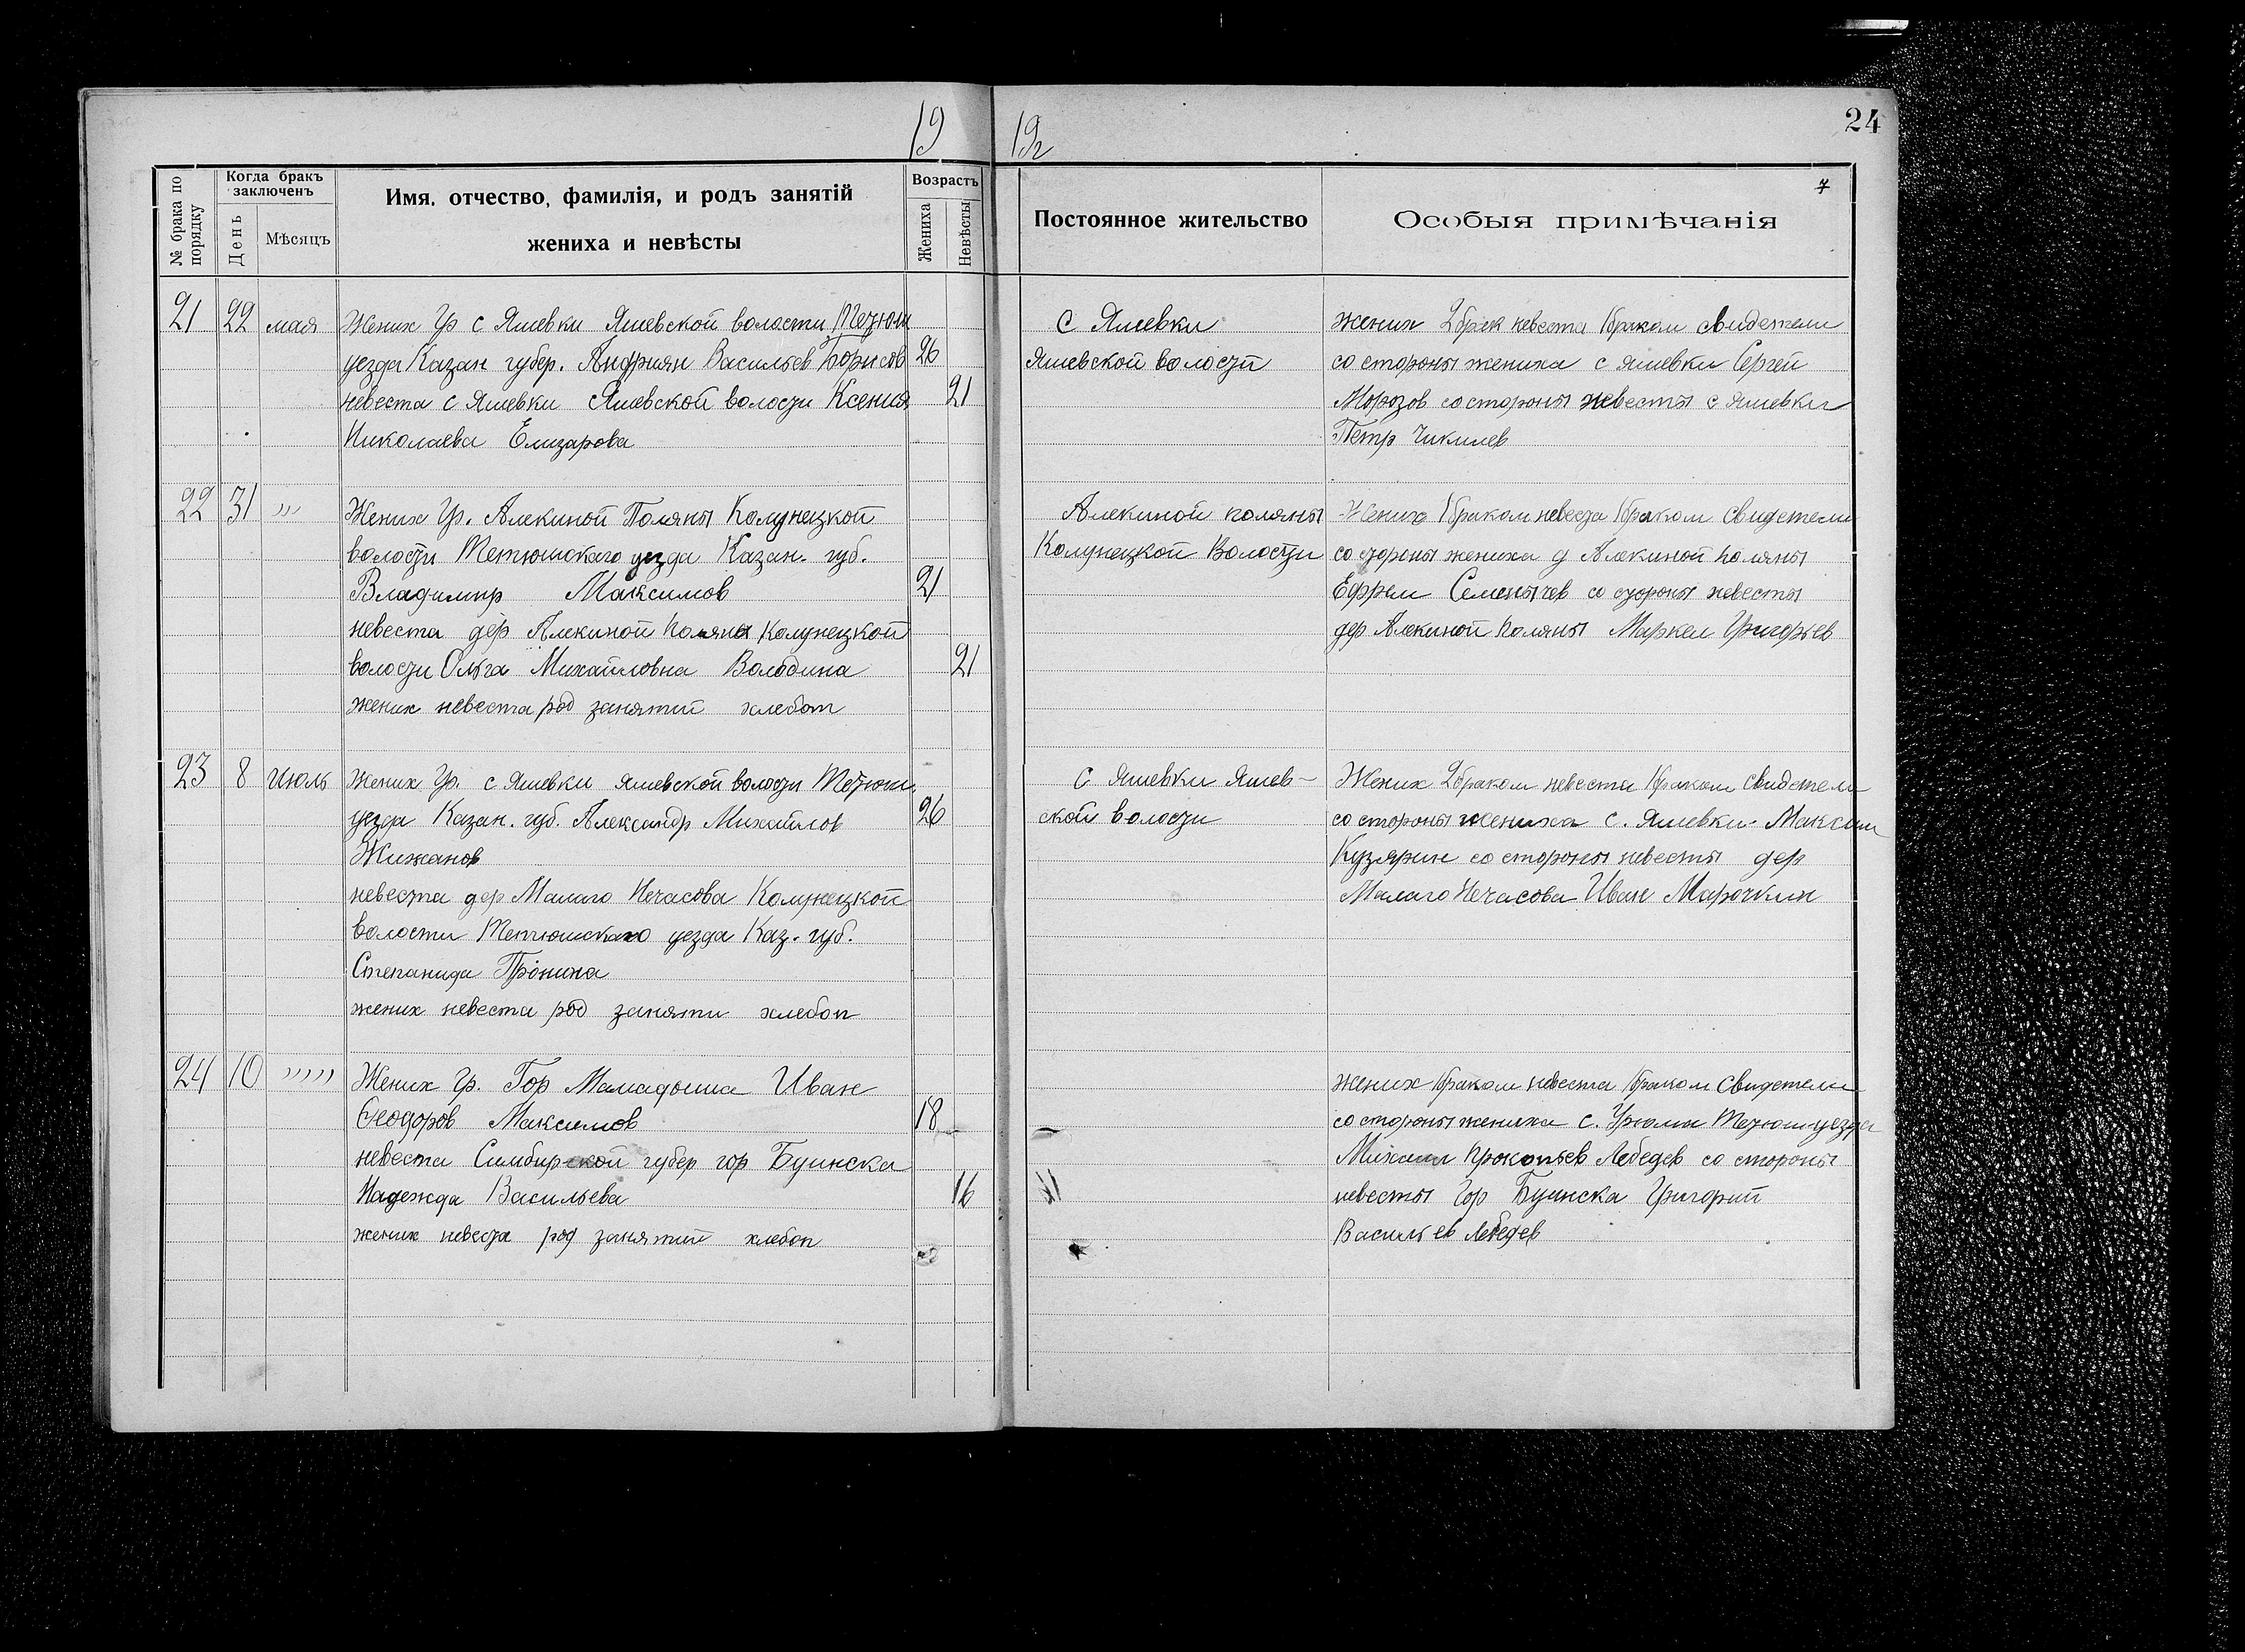 19
19г
24
7
№ брака по порядку
Когда бракъ заключенъ
День
Мѣсяцъ
Имя, отчество, фамилія, и родъ занятій
жениха и невѣсты
Возрастъ
Жениха
Невѣсты
Постоянное жительство
Особыя примѣчанія
21 22 мая Жених Гр с Яшевки Яшевской волости Тетюш
уезда Казан губер. Андриян Васильев Борисов 26
невеста с Яшевки Яшевской волости Ксения 21
Николаева Елизарова
с Яшевки
Яшевской волости
жених 2 брак невеста 1 браком свидетели
со стороны жениха с яшевки Сергей
Морозов со стороны невесты с яшевки
Петр Чикилев
22 31 〃 Жених Гр. Алекиной Поляны Колунецкой
волости Тетюшскаго уезда Казан. губ.
Владимир Максимов 21
невеста дер Алекиной поляна Колунецкой
волости Ольга Михайловна Володина 21
жених невеста род занятий хлебоп
Алекиной поляны
Колунецкой Волости
Жених 1 браком невеста 1 браком свидетели
со стороны жениха д Алекиной поляны
Ефрем Семенычев со стороны невесты
дер Алекиной поляны Маркел Григорьев
23 8 июль Жених Гр. с яшевки яшевской волости Тетюш.
уезда Казан. губ. Александр Михайлов 26
Жижанов
невеста дер Малаго Нечасова Колунецкой
волости Тетюшскаго уезда Каз. губ.
Степанида Пронина
жених невеста род заняти хлебоп
с яшевки яшев-
ской волости
Жених 2 браком невеста 1 браком свидетели
со стороны жениха с. яшевки Максим
Кузярин со стороны невесты дер
Малаго Нечасова Иван Марочкин
24 10 〃〃 Жених Гр. Гор Мамадыша Иван
Феодоров Максимов 18
невеста Симбирской губер гор Буинска
Надежда Васильева 16
жених невеста род занятий хлебоп
жених 1 браком невеста 1 браком свидетели
со стороны жениха с. Урюми Тетюш уезда
Михаил Прокопьев Лебедев со стороны
невесты Гор Буинска Григорий
Васильев Лебедев